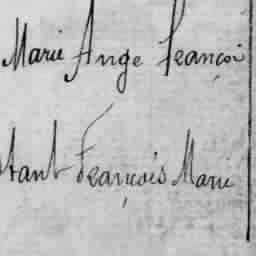 Marie Ange Françoi
stant François Marie